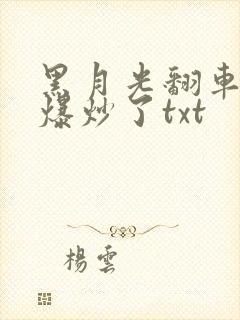 黑月光翻車
爆炒了txt
楊雲